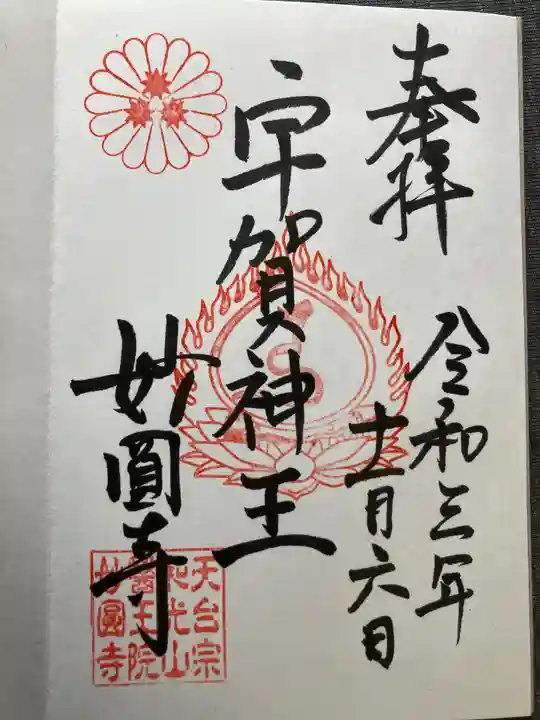 奉拝
令和三年
十一月六日
宇賀神王
妙圓寺
天台宗
和光山
醫王院
妙圓寺